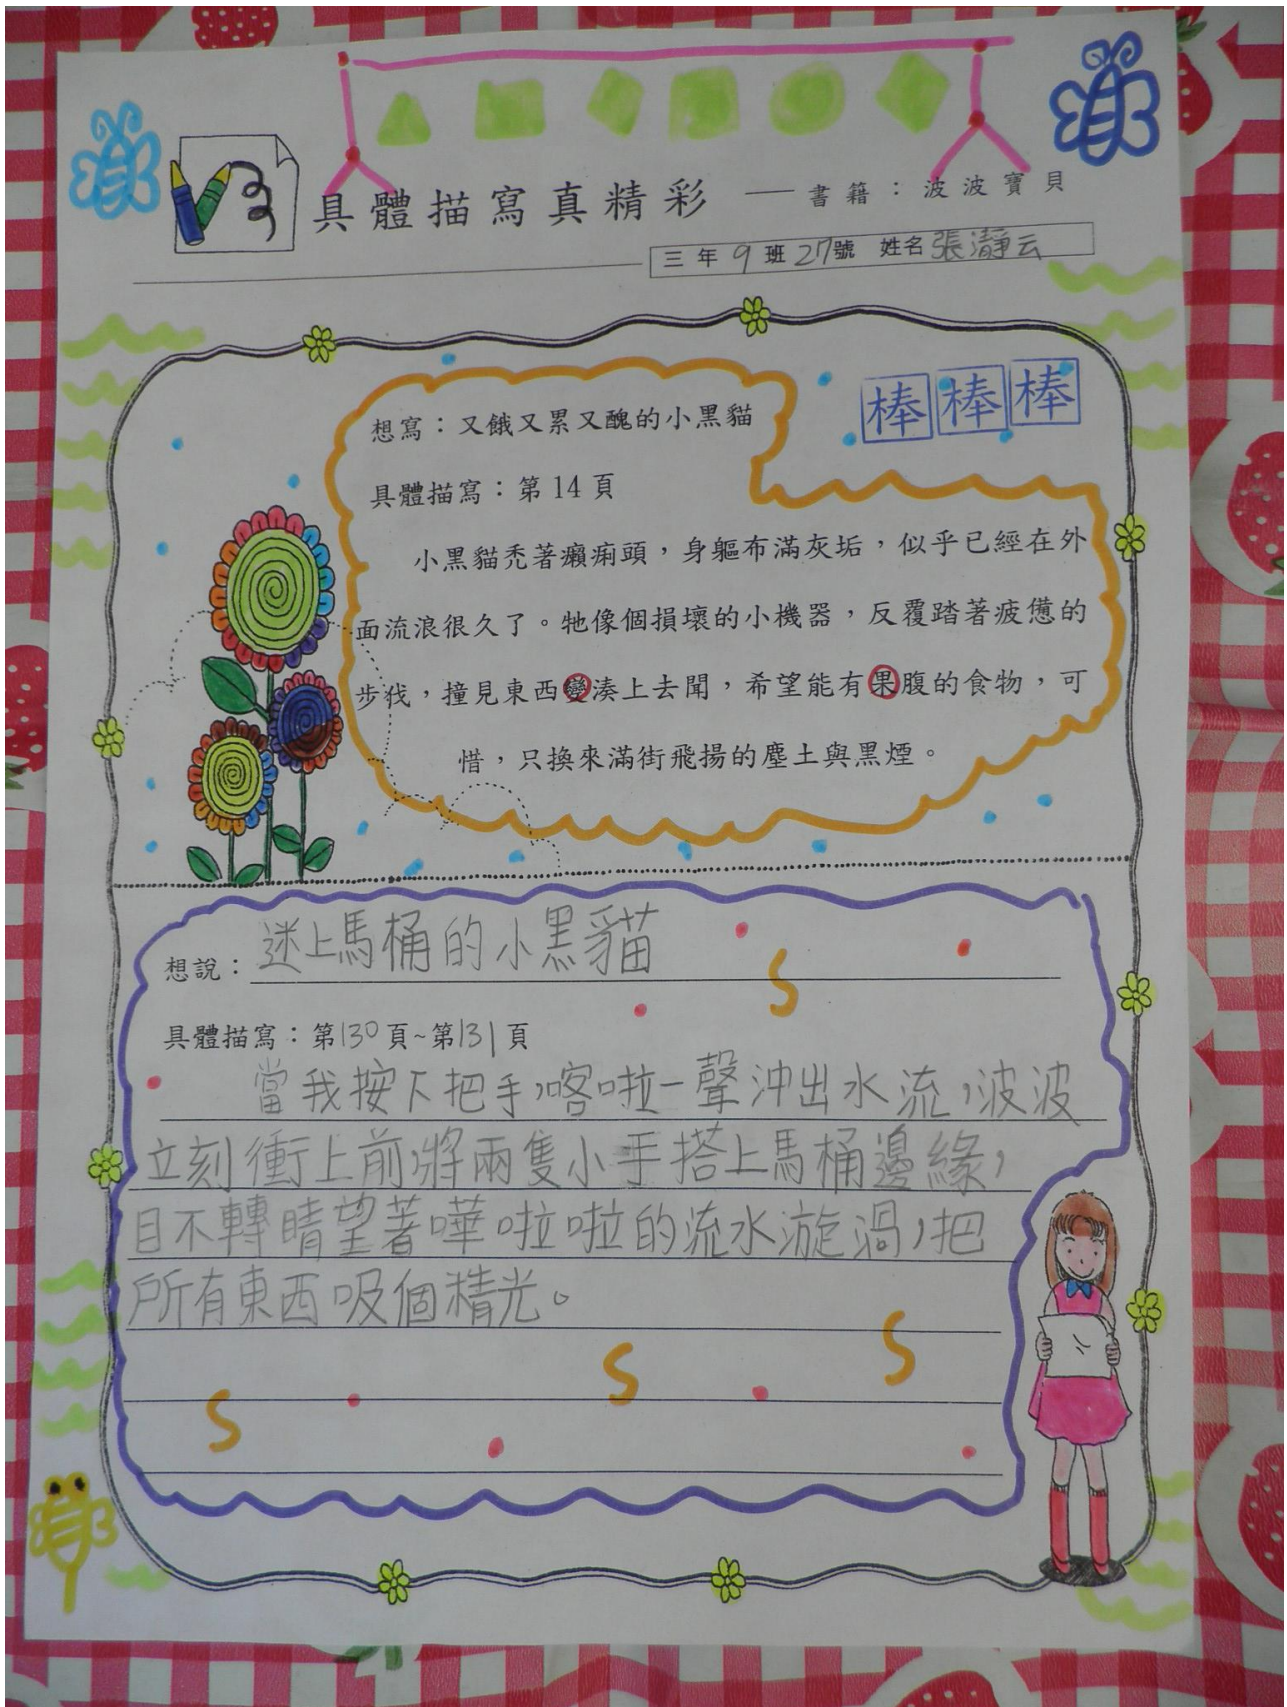 具體描寫真精彩 ── 書籍：波波寶貝
三年9班27號 姓名張瀞云
棒棒棒
想寫：又餓又累又醜的小黑貓
具體描寫：第14頁
小黑貓禿著癩痢頭，身軀布滿灰垢，似乎已經在外
面流浪很久了。牠像個損壞的小機器，反覆踏著疲憊的
步伐，撞見東西變湊上去聞，希望能有果腹的食物，可
惜，只換來滿街飛揚的塵土與黑煙。
想說：迷上馬桶的小黑貓
具體描寫：第130頁~第131頁
當我按下把手，喀啦一聲沖出水流，波波
立刻衝上前，將兩隻小手搭上馬桶邊緣，
目不轉睛望著嘩啦啦的流水漩渦，把
所有東西吸個精光。
S
S
S
S